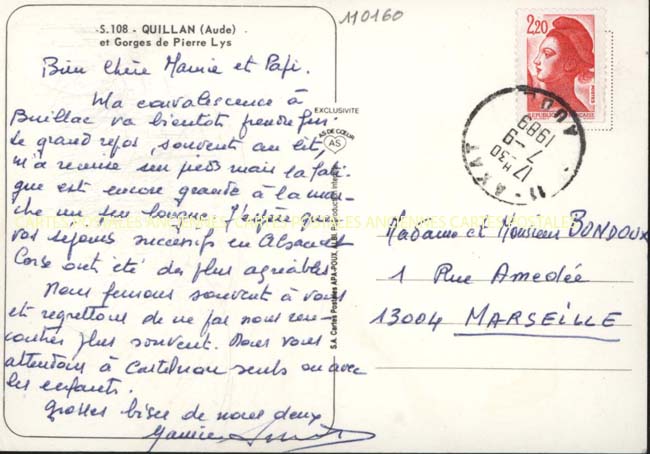 S.108 - QUILLAN (Aude)
et Gorges de Pierre Lys
110160
Bien chère Mamie et Papi.
Ma convalescence à
va bientôt prendre fin.
Le grand repos, souvent au lit,
m'a remise sur pieds mais la fati-
gue est encore grande à la mar-
che un peu longue. J'espère que
vos séjours successifs en Alsace et
Corse ont été des plus agréables
Nous pensons souvent à vous
et regrettons de ne pas nous ren-
contrer plus souvent. Nous vous
attendons à seuls ou avec
les enfants.
Grosses bises de nous deux
EXCLUSIVITE
AS DE CŒUR
AS
S.A. Cartes Postales APA-POUX, ALBI
2,20
POSTES
REPUBLIQUE FRANÇAISE
17 H 30
7-9
1989
AUDE
11
CARTES POSTALES ANCIENNES CARTES POSTALES
Madame et Monsieur BONDOUX
1 Rue Amedée
13004 MARSEILLE